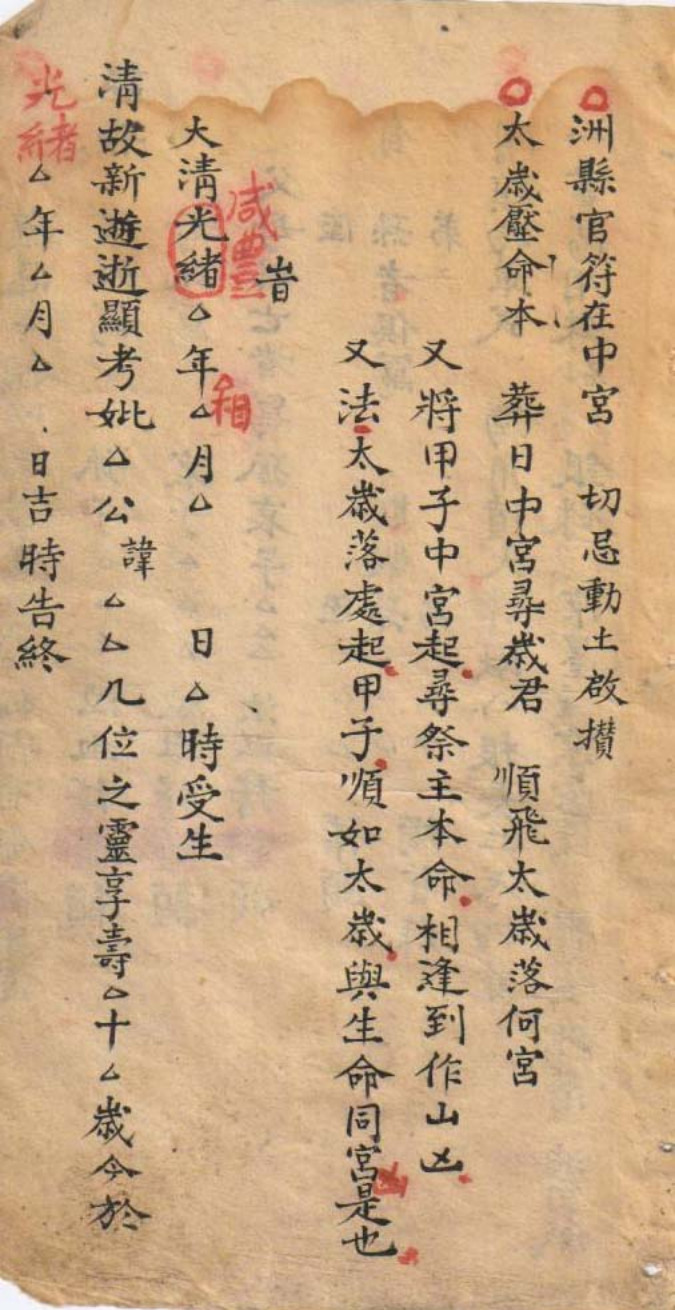 ○洲縣官符在中宮 切忌動土啟攢
○太歲壓命本 葬日中宮尋歲君 順飛太歲落何宮
又將甲子中宮起尋祭主本命相逢到作山凶
又法太歲落處起甲子順如太歲與生命同宮是也
凶
旹
咸豐
大清光緒△年△月△ 日△時受生
相
清故新遊逝顯考妣△公諱△△几位之靈享壽△十△歲今於
光緒△年△月△日吉時告終